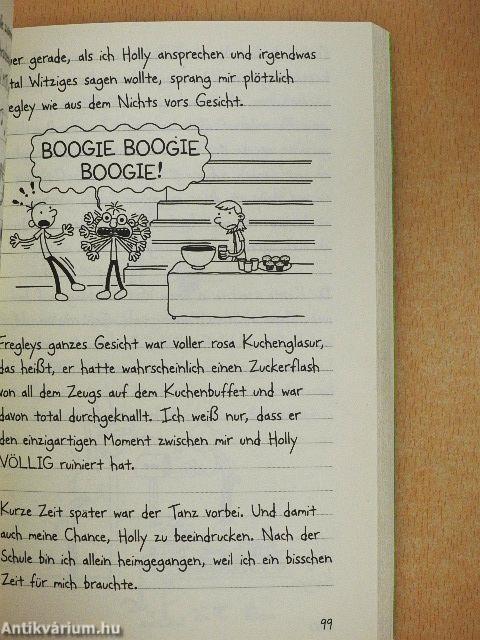 er gerade, als ich Holly ansprechen und irgendwas
tal Witziges sagen wollte, sprang mir plötzlich
egley wie aus dem Nichts vors Gesicht.
BOOGIE BOOGIE
BOOGIE!
Fregleys ganzes Gesicht war voller rosa Kuchenglasur,
das heißt, er hatte wahrscheinlich einen Zuckerflash
von all dem Zeugs auf dem Kuchenbuffet und war
davon total durchgeknallt. Ich weiß nur, dass er
den einzigartigen Moment zwischen mir und Holly
VÖLLIG ruiniert hat.
Kurze Zeit später war der Tanz vorbei. Und damit
auch meine Chance, Holly zu beeindrucken. Nach der
Schule bin ich allein heimgegangen, weil ich ein bisschen
Zeit für mich brauchte.
99
Antikvárium.hu